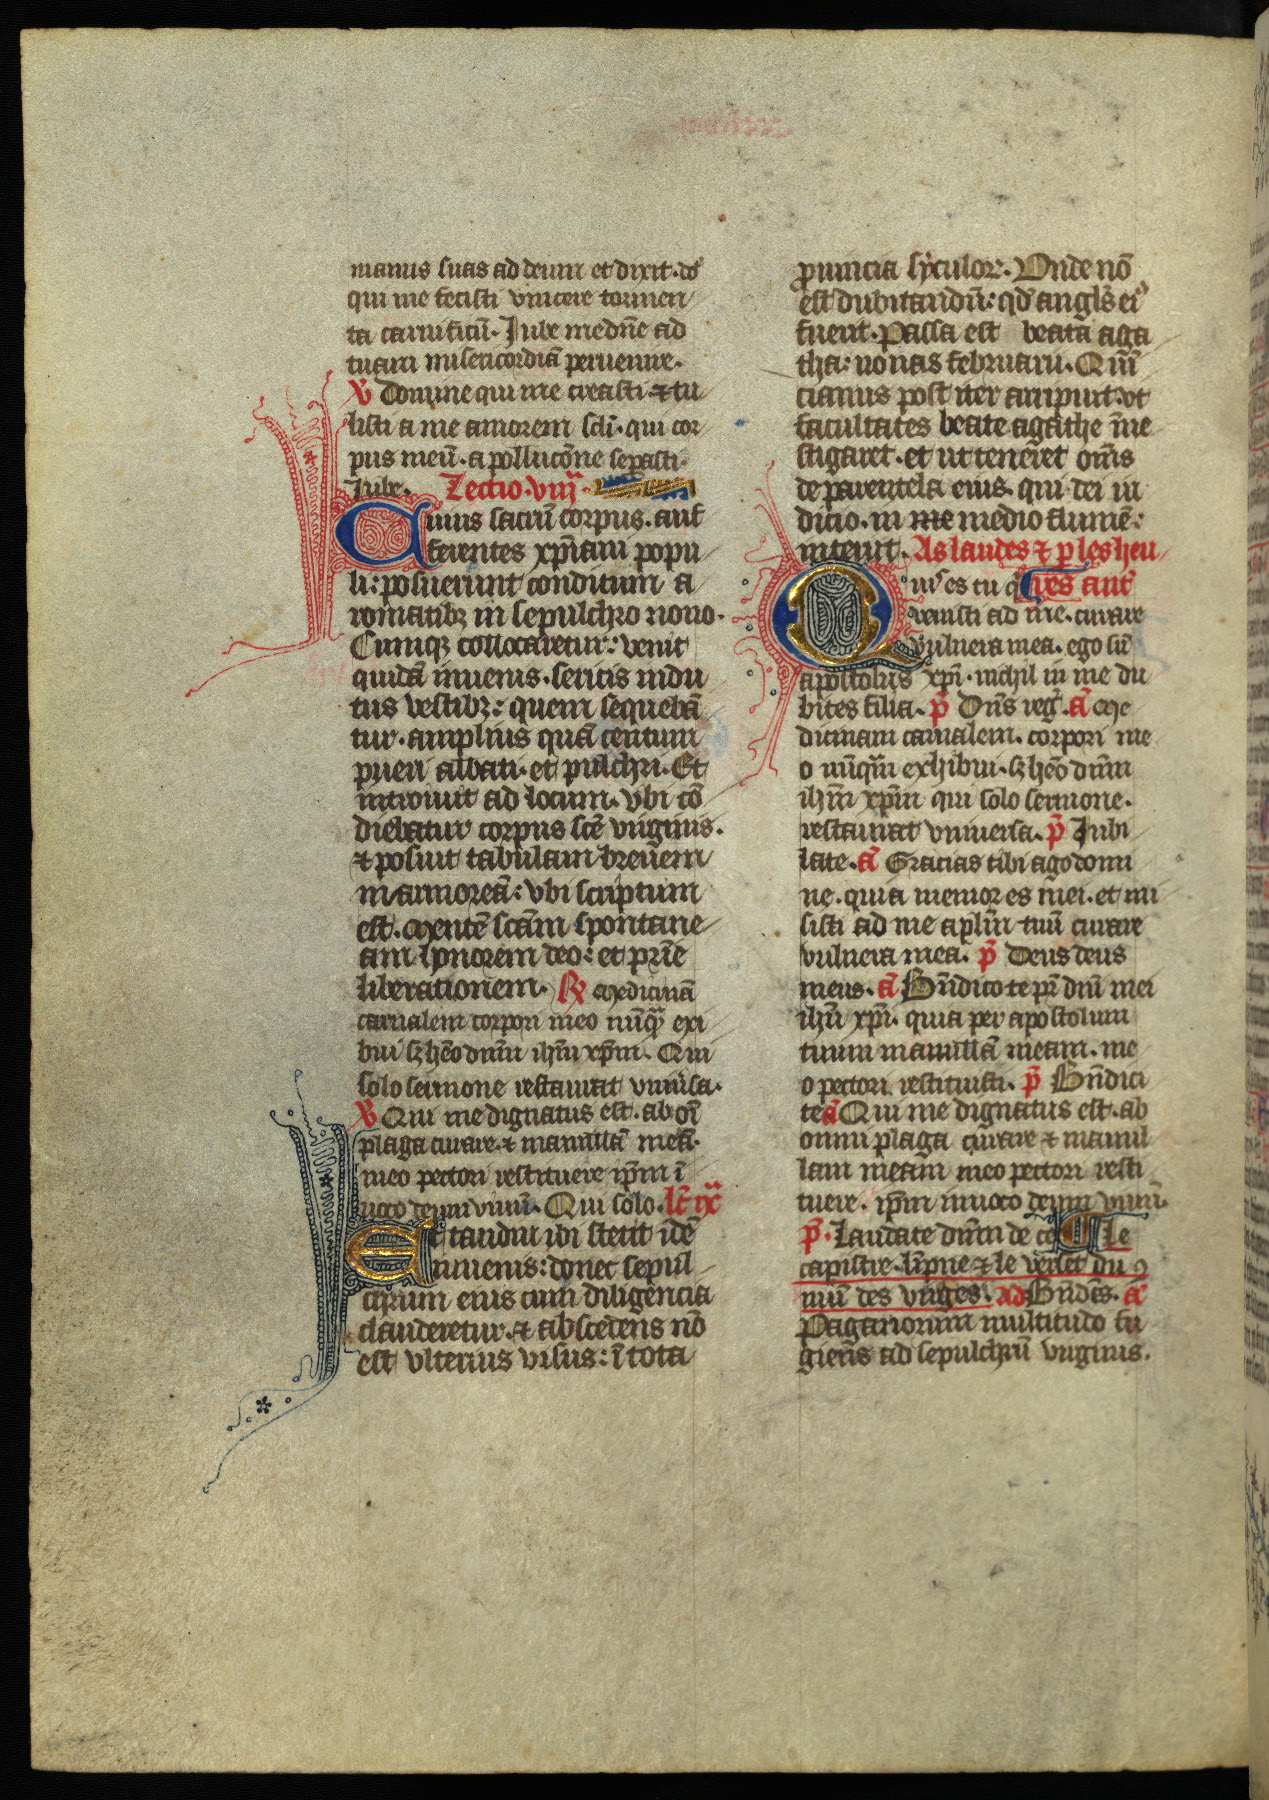 manus suas ad deum et dixit. d̄s
qui me fecisti vincere tormen
ta carnificū. Jube me dn̄e ad
tuam misericordiā peruenire.
V Domine qui me creasti ⁊ tu
listi a me amorem sc̄li. qui cor
pus meū. a pollucōne sep̄asti.
Jube. Lectio. viij
Cuius sacrū corpus. auf
ferentes xp̄iani popu
li: posuerunt conditum a
romatibꝫ in sepulchro nouo.
Cumqꝫ collocaretur: venit
quidā iuuenis. sericis indu
tus vestibꝫ: quem sequebā
tur. amplius quā centum
pueri albati. et pulchri. Et
introiuit ad locum. vbi cō
diebatur corpus scē virginis.
⁊ posuit tabulam breuem
marmoreā: vbi scriptum
est. Mentē scām spontane
am honorem deo: et pr̄ie
liberationem. R̄ Medicinā
carnalem corpori meo nūqꝫ exi
bui sꝫ hēo dn̄m ih̄m xp̄m. Qui
solo sermone restaurat vniu̓sa.
V Qui me dignatus est. ab oī
plaga curare. ⁊ mamillā meā.
meo pectori restituere ip̄m ī
uoco deum viuū. Qui solo. lc̄ ix
Et tandiu ibi stetit idē
iuuenis: donec sepul
crum eius cum diligencia
clauderetur. ⁊ abscedens nō
est vlterius visus: ī tota
prouincia syculor. Vnde nō
est dubitandū: qd̄ angl̄s ei᷒
fuerit. Passa est beata aga
tha: nonas februarii. Quī
cianus post iter arripuit: vt
facultates beate agathe īue
stigaret. et ut teneret om̄s
de parentela eius. qui dei iu
dicio. in me medio flumīe:
interiit. As laudes ⁊ p les heu
res ant̄
Quis es tu q̇
venisti ad me. curare
vulnera mea. ego sū
apostolus xp̄i. nichil in me du
bites filia. p̄ Dn̄s reg̓. ā Me
dicinam carnalem. corpori me
o nūqm̄ exhibui. sꝫ hēo dn̄m
ih̄m xp̄m qui solo sermone.
restaurat vniuersa. p̄ Jubi
late. ā Gracias tibi ago domi
ne. quia memor es mei. et mi
sisti ad me apl̄m tuū curare
vulnera mea. p̄ Deus deus
meus. ā Bn̄dico te pr̄ dn̄i mei
ih̄u xp̄i. quia per apostolum
tuum mamillā meam. me
o pectori restituisti. p̄ Bn̄dici
te ā Qui me dignatus est. ab
omni plaga curare ⁊ mamil
lam meam meo pectori resti
tuere. ip̄m inuoco deum viuū.
p̄. Laudate dn̄m de ce Le
capistre. lȳpne ⁊ le verset du ꝯ
mū des virges. ad Bn̄dc̄s. ā
Paganorum multitudo fu
giens ad sepulchrū virginis.